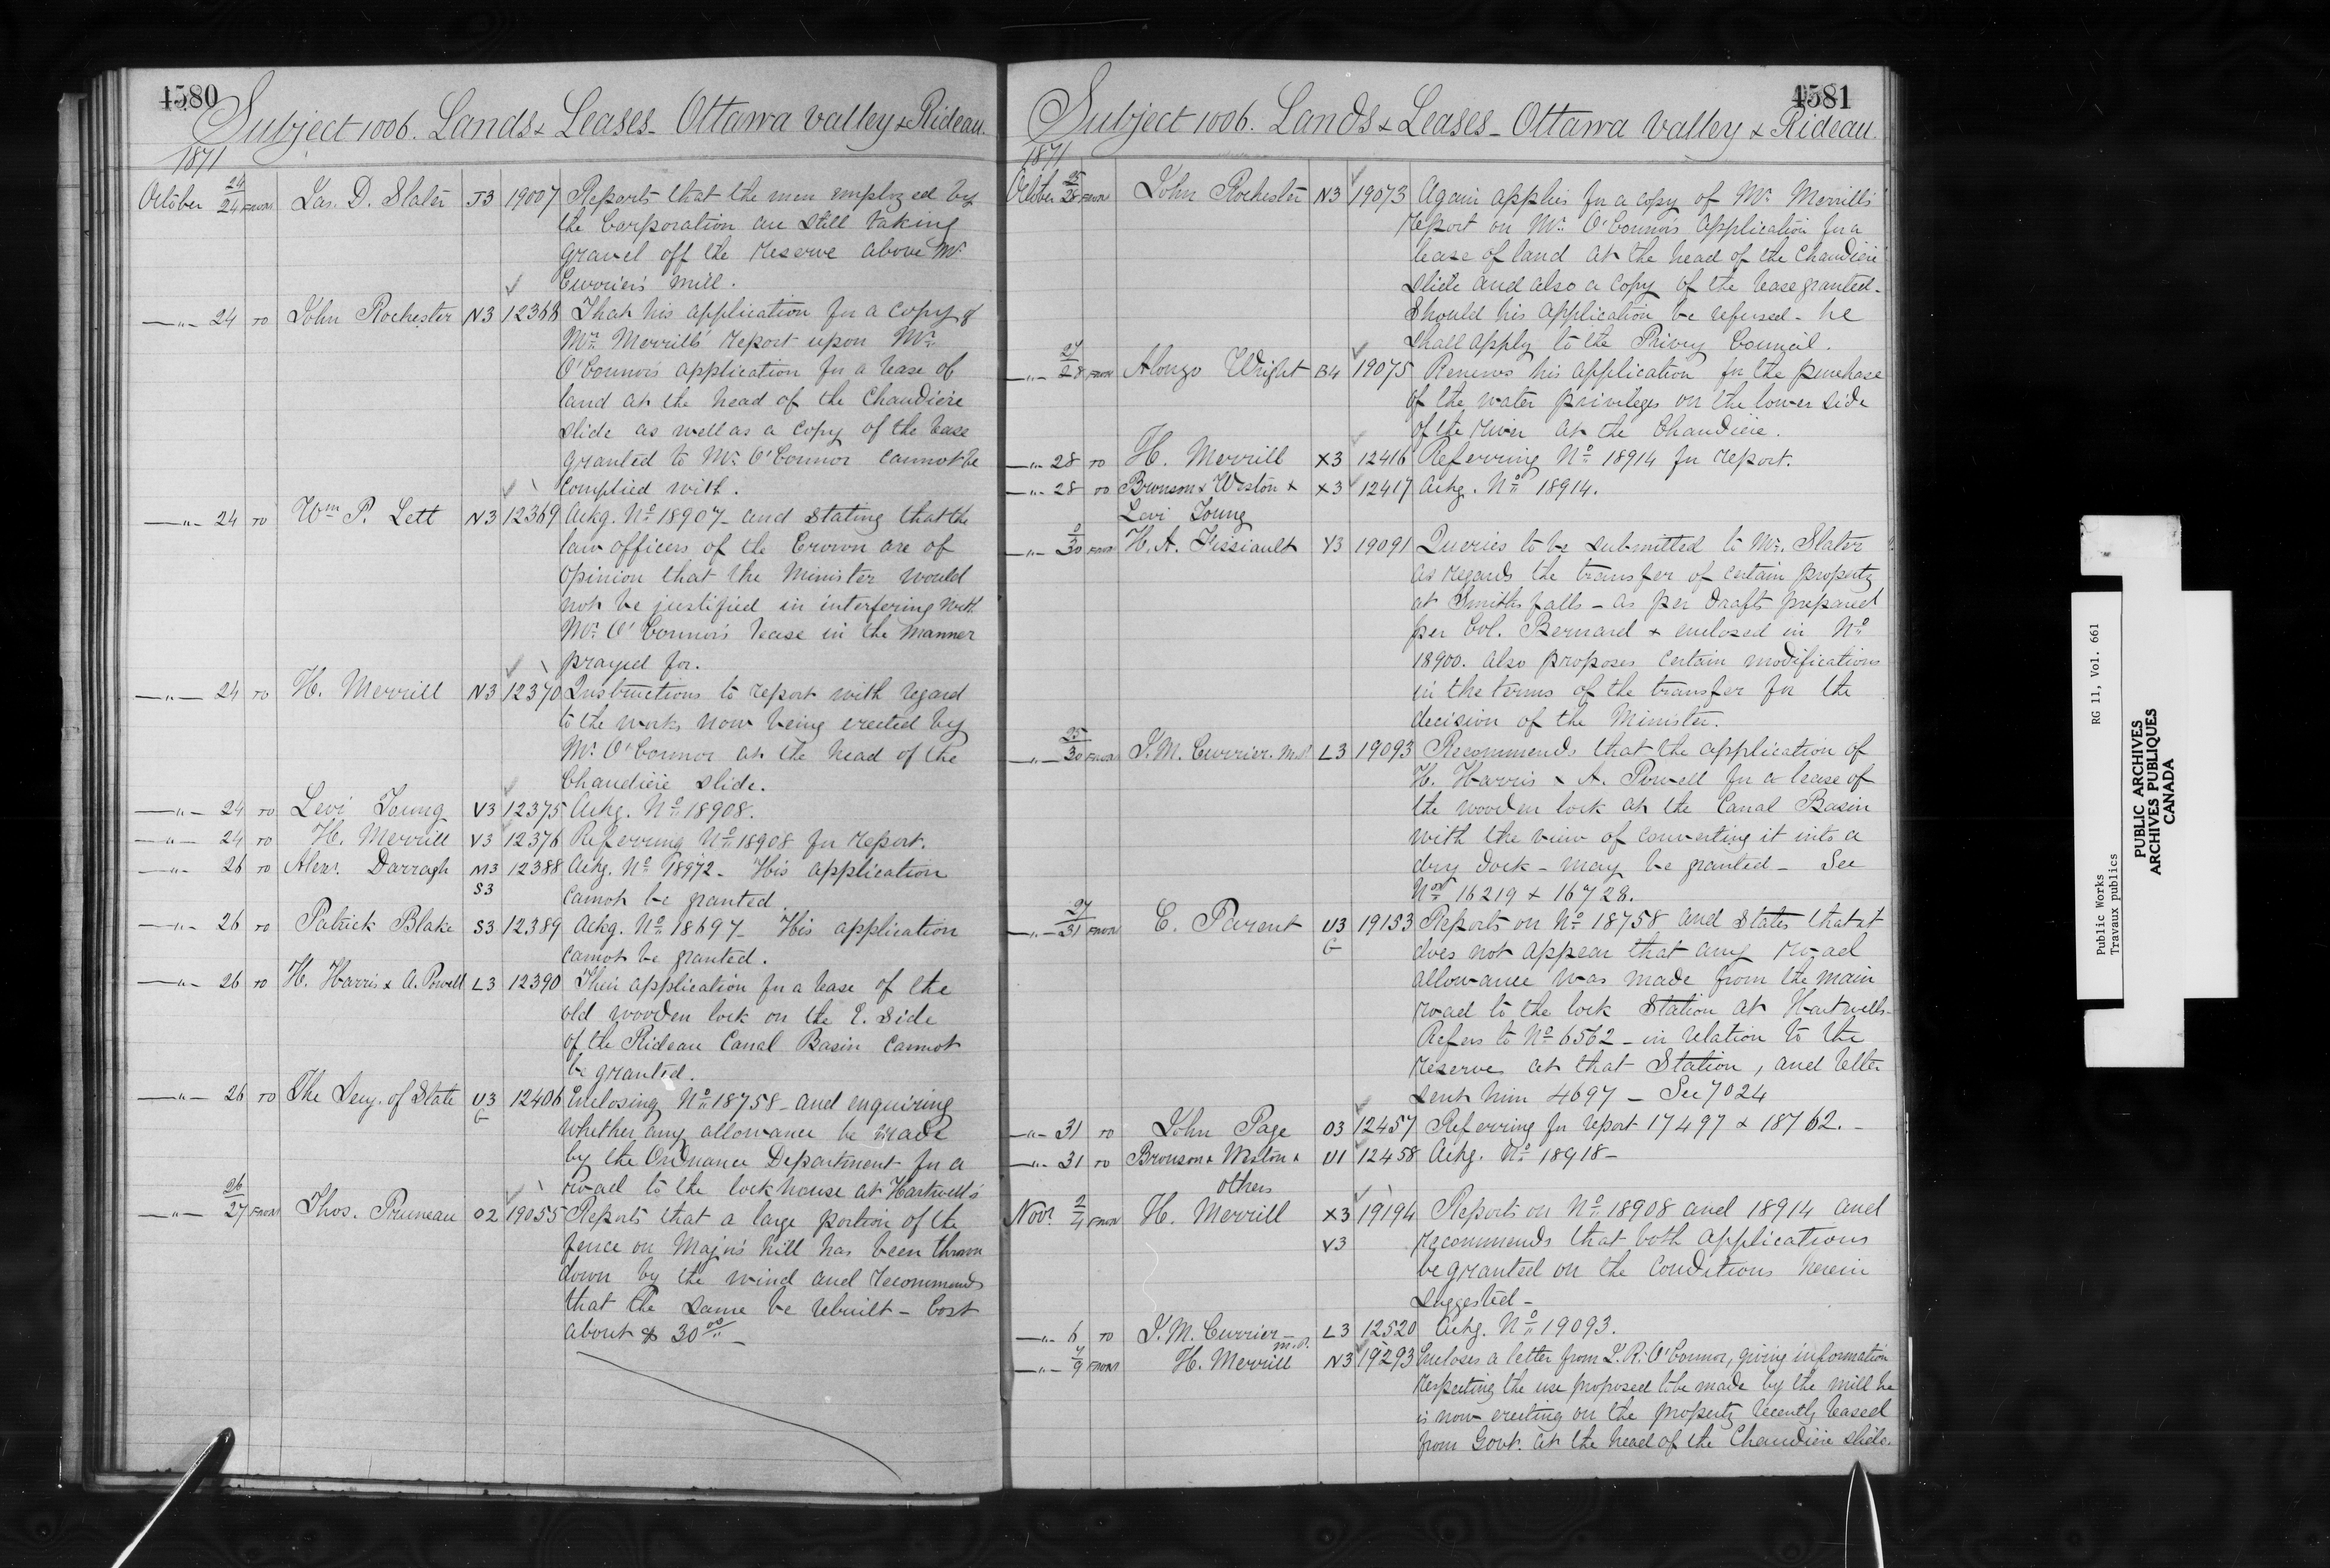 4580
Subject 1006. Lands & Leases - Ottawa Valley & Rideau.
1871
October 24/24 FROM Jas. D. Slater J3 19007 Reports that the men employed by
the Corporation are still taking
gravel off the reserve above Mr.
Currier's mill.
—"— 24 TO John Rochester N3 12368 That his application for a copy of
Mr. Merrill's report upon Mr.
O'Connor's application for a lease of
land at the head of the Chaudiere
slide as well as a copy of the lease
granted to Mr. O'Connor cannot be
complied with.
—"— 24 TO Wm P. Lett N3 12369 Ackg. No. 18907 - and stating that the
law officers of the Crown are of
opinion that the Minister would
not be justified in interfering with
Mr. O'Connor's lease in the manner
prayed for.
—"— 24 TO H. Merrill N3 12370 Instructions to report with regard
to the works now being erected by
Mr. O'Connor at the head of the
Chaudiere slide.
—"— 24 TO Levi Young V3 12375 Ackg. No. 18908.
—"— 24 TO H. Merrill V3 12376 Referring No. 18908 for report.
—"— 26 TO Alexr. Darragh M3 12388 Ackg. No. 18972 - His application
S3 cannot be granted.
—"— 26 TO Patrick Blake S3 12389 Ackg. No. 18697 - His application
cannot be granted.
—"— 26 TO H. Harris & A. Powell L3 12390 Their application for a lease of the
old wooden lock on the E. side
of the Rideau Canal Basin cannot
be granted.
—"— 26 TO The Secy. of State U3 12406 Enclosing No. 18758 - and enquiring
G whether any allowance be made
by the Ordnance Department for a
road to the lockhouse at Hartwell's
—"— 26/27 FROM Thos. Pruneau O2 19055 Reports that a large portion of the
fence on Major's hill has been thrown
down by the wind and recommends
that the same be rebuilt - Cost
about $ 30 00 -
4581
Subject 1006. Lands & Leases - Ottawa Valley & Rideau.
1871
October 25/28 FROM John Rochester N3 19073 Again applies for a copy of Mr. Merrill's
report on Mr. O'Connor's application for a
lease of land at the head of the Chaudiere
slide and also a copy of the lease granted -
Should his application be refused - he
shall apply to the Privy Council.
—"— 27/28 FROM Alonzo Wright B4 19075 Renews his application for the purchase
of the water privileges on the lower side
of the river at the Chaudiere.
—"— 28 TO H. Merrill X3 12416 Referring No. 18914 for report.
—"— 28 TO Bronson & Weston & X3 12417 Ackg. No. 18914.
Levi Young
—"— 30 FROM H. A. Fissiault Y3 19091 Queries to be submitted to Mr. Slater
as regards the transfer of certain property
at Smiths falls - as per drafts prepared
per Col. Bernard & enclosed in No.
18900. Also proposes certain modifications
in the terms of the transfer for the
decision of the Minister.
—"— 25/30 FROM J. M. Currier. M.P. L3 19093 Recommends that the application of
H. Harris & A. Powell for a lease of
the wooden lock at the Canal Basin
with the view of converting it into a
dry dock - may be granted - See
Nos. 16219 & 16728.
—"— 27/31 FROM E. Parent U3 19153 Reports on No. 18758 and states that it
G does not appear that any road
allowance was made from the main
road to the lock station at Hartwells -
Refers to No. 6562 - in relation to the
reserve at that Station, and letter
sent him 4697 - See 7024
—"— 31 TO John Page O3 12457 Referring for report 17497 & 18762. -
—"— 31 TO Bronson & Weston & U1 12458 Ackg. No. 18918 -
others
Novr. 2/4 FROM H. Merrill X3 19194 Reports on No. 18908 and 18914 and
V3 recommends that both applications
be granted on the conditions herein
suggested -
—"— 6 TO J. M. Currier - M.P. L3 12520 Ackg. No. 19093.
—"— 7/9 FROM H. Merrill N3 19293 Encloses a letter from L. R. O'Connor, giving information
respecting the use proposed to be made by the mill he
is now erecting on the property recently leased
from Govt. at the head of the Chaudiere slide.
Public Works RG 11, Vol. 661
Travaux publics
PUBLIC ARCHIVES
ARCHIVES PUBLIQUES
CANADA